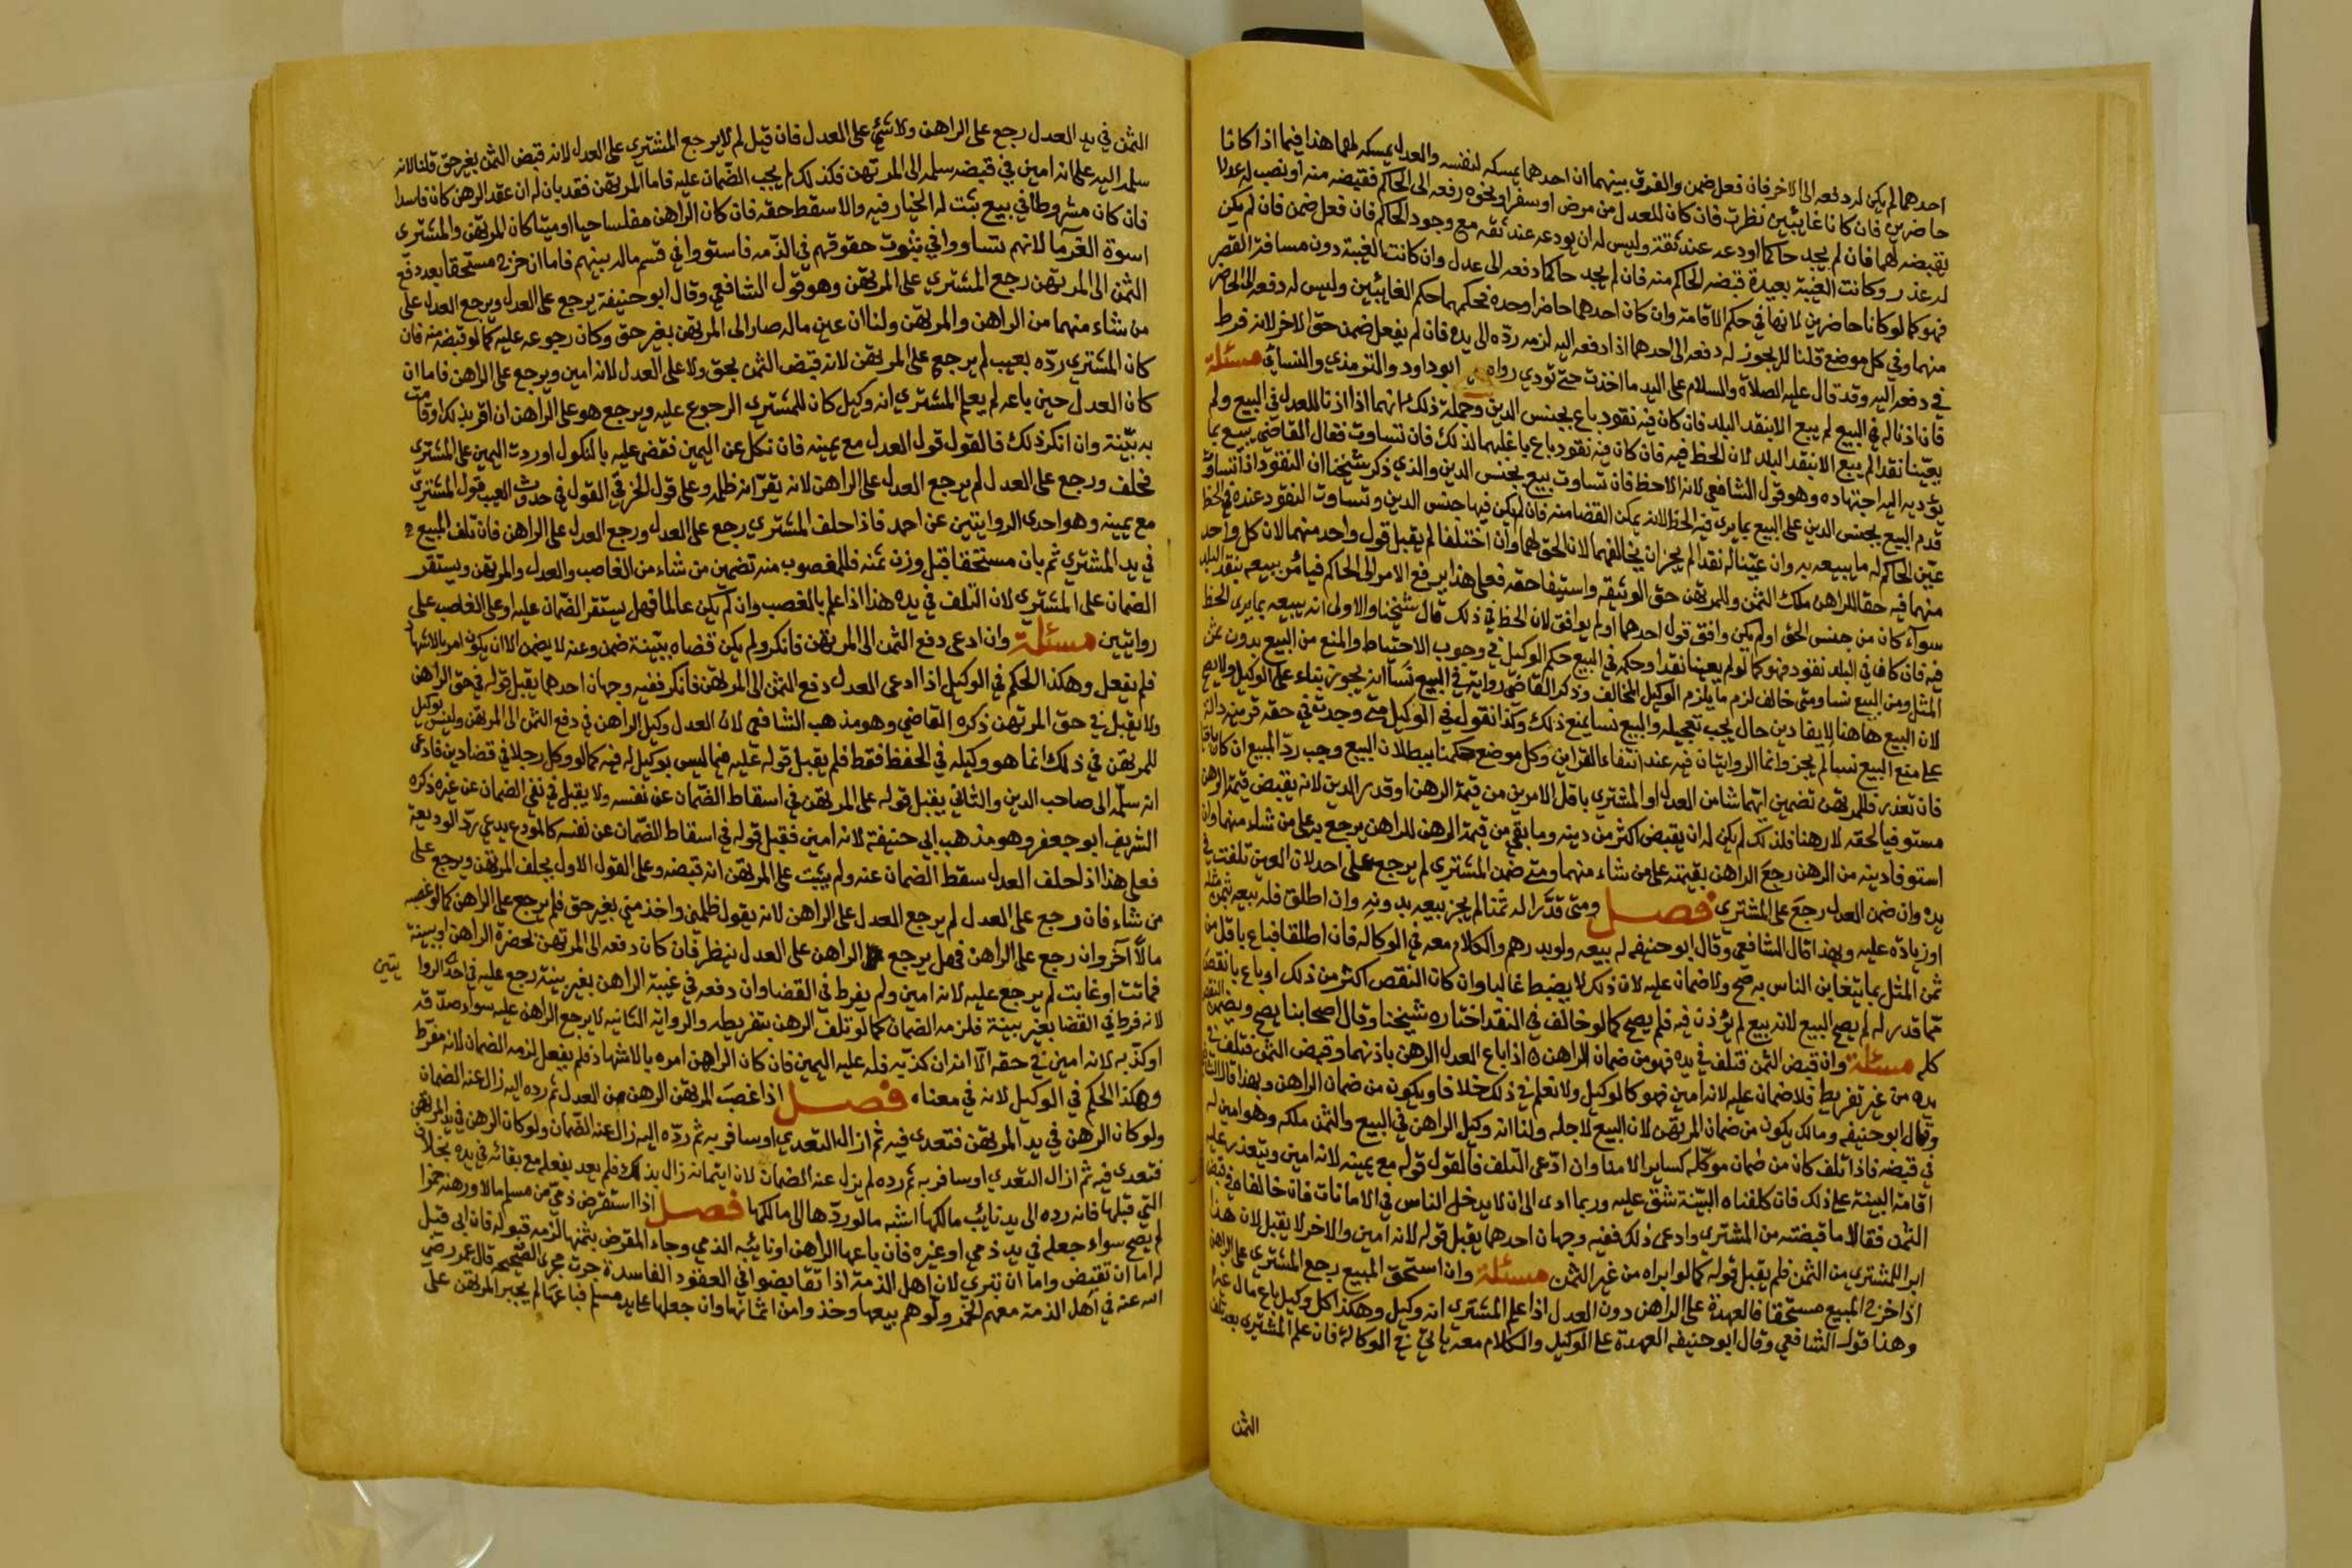 احدهما لم يكن له دفعه الى الاخر فان فعل ضمن والفرق بينهما ان احدهما يمسكه لنفسه والعدل يمسكه لهما هذا فيما اذا كانا
حاضرين فان كانا غائبين نظرت فان كان للعدل من مرض او سفر او نحوه رفعه الى الحاكم فقبضه منه او نصب له عدلا
يقبضه لهما فان لم يجد حاكما اودعه عند ثقة وليس له ان يودعه عند ثقه مع وجود الحاكم فان فعل ضمن فان لم يكن
له عذر وكانت الغيبة بعيدة قبضه الحاكم منه فان لم يجد حاكما دفعه الى عدل وان كانت الغيبة دون مسافة القصر
فهو كما لو كانا حاضرين لانها في حكم الاقامة وان كان احدهما حاضرا وحده فحكمهما حكم الغائبين وليس له دفعه الى الحاضر
منهما وفي كل موضع قلنا لا يجوز له دفعه الى احدهما اذا دفعه اليه لزمه ردّه الى يده فان لم يفعل ضمن حق الاخر لانه فرط
في دفعه اليه وقد قال عليه الصلاة والسلام على اليد ما اخذت حتى تودي رواه ابو داود والترمذي والنسائي مسئلة
فان اذنا له في البيع لم يبع الا بنقد البلد فان كان فيه نقود باع بجنس الدين وجملة ذلك انهما اذا اذنا للعدل في البيع ولم
يعيّنا نقدا لم يبع الا بنقد البلد لان الحظ فيه فان كان فيه نقود باع باغلبهما لذلك فان تساوت فقال القاضي يبيع بما
يؤديه اليه اجتهاده وهو قول الشافعي لانه الاحظ فان تساوت بيع بجنس الدين والذي ذكر شيخنا ان النقود اذا تساوت
قدم البيع بجنس الدين على البيع بما يرى فيه الحظ لانه يمكن القضا منه فان لم يكن فيها جنس الدين وتساوت النقود عنده في الحظ
عيّن الحاكم له ما يبيعه به وان عيّنا له نقدا لم يجز ان يخالفهما لان الحق لهما وان اختلفا لم يقبل قول واحد منهما لان كل واحد
منهما فيه حقا للراهن ملك الثمن وللمرتهن حق الوثيقه واستيفا حقه فعلى هذا يرفع الامر الى الحاكم فيأمر ببيعه بنقد البلد
سوآء كان من جنس الحق او لم يكن وافق قول احدهما او لم يوافق لان الحظ في ذلك قال شيخنا والاولى انه يبيعه بما يرى الحظ
فيه فان كان في البلد نقود فهو كما لو لم يعينا نقدا وحكمه في البيع حكم الوكيل في وجوب الاحتياط والمنع من البيع بدون ثمن
المثل ومن البيع نسا ومتى خالف لزم ما يلزم الوكيل المخالف وذكر القاضي رواية في البيع نسأ انه يجوز بناء على الوكيل ولا يصح
لان البيع هاهنا لايفا دين حال يجب تعجيله والبيع نسا يمنع ذلك وكذا نقول في الوكيل متى وجدت في حقه قرينه دالة
على منع البيع نسأ لم يجز وانما الروايتان فيه عند انتفاء القراين وكل موضع حكمنا ببطلان البيع وجب ردّ المبيع ان كان باقيا
فان تعذر فللمرتهن تضمين ايهما شا من العدل او المشتري باقل الامرين من قيمة الرهن او قدر الدين لانه يقبض قيمة الرهن
مستوفيا لحقه لا رهنا فلذلك لم يكن له ان يقبض اكثر من دينه وما بقي من قيمة الرهن للراهن يرجع به على من شاء منهما وان
استوفا دينه من الرهن رجع الراهن بقيمته على من شاء منهما ومتى ضمن المشتري لم يرجع على احد لان العين تلفت في
يده وان ضمن العدل رجع على المشتري فصـل ومتى قدّرا له ثمنا لم يجز بيعه بدونه وان اطلق فله بيعه بثمن مثله
او زيادة عليه وبهذا قال الشافعي وقال ابو حنيفه له بيعه ولو بدرهم والكلام معه في الوكاله فان اطلقا فباع باقل من
ثمن المثل بما يتغابن الناس به صح ولا ضمان عليه لان ذلك لا يضبط غالبا وان كان النقص اكثر من ذلك او باع بانقص
مّما قدر له لم يصح البيع لانه بيع لم يؤذن فيه فلم يصح كما لو خالف في النقد اختاره شيخنا وقال اصحابنا يصح ويضمن النقص
كله مسئلة وان قبض الثمن فتلف في يده فهو من ضمان الراهن اذا باع العدل الرهن باذنهما وقبض الثمن فتلف في
يده من غير تفريط فلا ضمان عليه لانه امين فهو كالوكيل ولا نعلم في ذلك خلافا ويكون من ضمان الراهن وبهذا قال الشافعي
وقال ابو حنيفه ومالك يكون من ضمان المرتهن لان البيع لاجله ولنا انه وكيل الراهن في البيع والثمن ملكه وهو امين له
في قبضه فاذا تلف كان من ضمان موكّله كساير الامنا وان ادّعى التلف فالقول قوله مع يمينه لانه امين ويتعذر عليه
اقامة البينة على ذلك فان كلفناه البيّنة شق عليه وربما ادى الى ان لا يدخل الناس في الامانات فان خالفاه في قبض
الثمن فقالا ما قبضته من المشتري وادعى ذلك ففيه وجهان احدهما يقبل قوله لانه امين والاخر لا يقبل لان هذا
ابرا للمشتري من الثمن فلم يقبل قوله كما لو ابراه من غير الثمن مسئلة وان استحق المبيع رجع المشتري على الراهن
اذا خرج المبيع مستحقا فالعهدة على الراهن دون العدل اذا علم المشتري انه وكيل وهكذا كل وكيل باع مال غيره
وهذا قول الشافعي وقال ابو حنيفه العهدة على الوكيل والكلام معه ياتي في الوكالة فان علم المشتري بعد تلف
الثمن
الثمن في يد العدل رجع على الراهن ولا شئ على العدل فان قيل لم لا يرجع المشتري على العدل لانه قبض الثمن بغير حق قلنا لانه
سلمه اليه على انه امين في قبضه سلمه الى المرتهن فكذلك لم يجب الضمان عليه فاما المرتهن فقد بان له ان عقد الرهن كان فاسدا
فان كان مشروطا في بيع ثبت له الخيار فيه والا سقط حقه فان كان الراهن مفلسا حيا او ميتا كان المرتهن والمشتري
اسوة الغرما لانهم تساووا في ثبوت حقوقهم في الذمه فاستووا في قسم ماله بينهم فاما ان خرج مستحقا بعد دفع
الثمن الى المرتهن رجع المشتري على المرتهن وهو قول الشافعي وقال ابو حنيفة يرجع على العدل ويرجع العدل على
من شاء منهما من الراهن والمرتهن ولنا ان عين ماله صار الى المرتهن بغير حق وكان رجوعه عليه كما لو قبضه منه فان
كان المشتري ردّه بعيب لم يرجع على المرتهن لانه قبض الثمن بحق ولا على العدل لانه امين ويرجع على الراهن فاما ان
كان العدل حين باعه لم يعلم المشتري انه وكيل كان للمشتري الرجوع عليه ويرجع هو على الراهن ان اقر بذلك او قامت
به بيّنة وان انكر ذلك فالقول قول العدل مع يمينه فان نكل عن اليمين فقضي عليه بالنكول او ردت اليمين على المشتري
فحلف ورجع على العدل لم يرجع العدل على الراهن لانه يقرّ انه ظلمه وعلى قول الخرقي القول في حدوث العيب قول المشتري
مع يمينه وهو احدى الروايتين عن احمد فاذا حلف المشتري رجع على العدل ورجع العدل على الراهن فان تلف المبيع
في يد المشتري ثم بان مستحقا قبل وزن ثمنه فللمغصوب منه تضمين من شاء من الغاصب والعدل والمرتهن ويستقر
الضمان على المشتري لان التلف في يده هذا اذا علم بالغصب وان لم يكن عالما فهل يستقر الضمان عليه او على الغاصب على
روايتين مسئلة وان ادعى دفع الثمن الى المرتهن فانكر ولم يكن قضاه ببيّنة ضمن وعنه لا يضمن الا ان يكون امر بالاشهاد
فلم يفعل وهكذا الحكم في الوكيل اذا ادعى العدل دفع الثمن الى المرتهن فانكر ففيه وجهان احدهما يقبل قوله في حق الراهن
ولا يقبل في حق المرتهن ذكره القاضي وهو مذهب الشافعي لان العدل وكيل الراهن في دفع الثمن الى المرتهن وليس بوكيل
للمرتهن في ذلك انما هو وكيله في الحفظ فقط فلم يقبل قوله عليه فيما ليس بوكيل له فيه كما لو وكل رجلا في قضا دين فادعى
انه سلمه الى صاحب الدين والثاني يقبل قوله على المرتهن في اسقاط الضّمان عن نفسه ولا يقبل في نفي الضمان عن غيره ذكره
الشريف ابو جعفر وهو مذهب ابي حنيفة لانه امين فقبل قوله في اسقاط الضمان عن نفسه كالمودع يدعي ردّ الوديعة
فعلى هذا اذا حلف العدل سقط الضمان عنه ولم يثبت على المرتهن انه قبضه وعلى القول الاول يحلف المرتهن ويرجع على
من شاء فان رجع على العدل لم يرجع العدل على الراهن لانه يقول ظلمني واخذ مني بغير حق فلم يرجع على الراهن كما لو غصبه
مالا آخر وان رجع على الراهن فهل يرجع الراهن على العدل ينظر فان كان دفعه الى المرتهن بحضرة الراهن او ببينة
فماتت او غابت لم يرجع عليه لانه امين ولم يفرط في القضا وان دفعه في غيبة الراهن بغير بينة رجع عليه في احدى الروا يتين
لانه فرط في القضا بغير بينة فلزمه الضمان كما لو تلف الرهن بتفريطه والرواية الثانيه لا يرجع الراهن عليه سواء صدّقه
او كذّبه لانه امين في حقه الّا انه ان كذّبه فله عليه اليمين فان كان الراهن امره بالاشهاد فلم يفعل لزمه الضمان لانه مفرط
وهكذا الحكم في الوكيل لانه في معناه فصـل اذا غصب المرتهن الرهن من العدل ثم رده اليه زال عنه الضمان
ولو كان الرهن في يد المرتهن فتعدى فيه ثم ازال التعدي او سافر به ثم ردّه اليه زال عنه الضمان ولو كان الرهن في يد المرتهن
فتعدى فيه ثم ازال التعدي او سافر به ثم رده لم يزل عنه الضمان لان ايتمانه زال بذلك فلم يعد بفعله مع بقائه في يده بخلاف
التي قبلها فانه رده الى يد نايب مالكها اشبه ما لو ردّها الى مالكها فصـل اذا استقرض ذمي من مسلم مالا ورهنه خمرا
لم يصح سواء جعله في يد ذمي او غيره فان باعها الراهن او نائبه الذمي وجاء المقرض بثمنها لزمه قبوله فان ابى قيل
له اما ان تقبض واما ان تبري لان اهل الذمة اذا تقابضوا في العقود الفاسدة جرت مجرى الصحيحه قال عمر رضي
الله عنه في اهل الذمة معهم الخمر ولّوهم بيعها وخذوا من اثمانها وان جعلها على يد مسلم فباعها لم يجبر المرتهن على